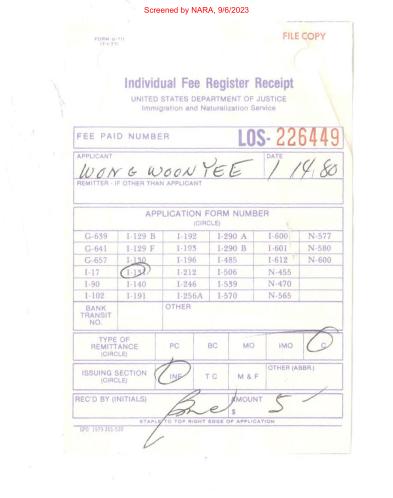 Screened by NARA, 9/6/2023
FORM G-711
FILE COPY
Individual Fee Register Receipt
UNITED STATES DEPARTMENT OF JUSTICE
Immigration and Naturalization Service
FEE PAID NUMBER LOS- 226449
APPLICANT DATE
WONG WOON YEE 1 14 80
REMITTER - IF OTHER THAN APPLICANT
APPLICATION FORM NUMBER
(CIRCLE)
G-639 I-129 B I-192 I-290 A I-600 N-577
G-641 I-129 F I-193 I-290 B I-601 N-580
G-657 I-130 I-196 I-485 I-612 N-600
I-17 I-131 I-212 I-506 N-455
I-90 I-140 I-246 I-539 N-470
I-102 I-191 I-256A I-570 N-565
BANK TRANSIT NO. OTHER
TYPE OF REMITTANCE (CIRCLE) PC BC MO IMO C
ISSUING SECTION (CIRCLE) INF T C M & F OTHER (ABBR.)
REC'D BY (INITIALS) AMOUNT
$ 5
STAPLE TO TOP RIGHT EDGE OF APPLICATION